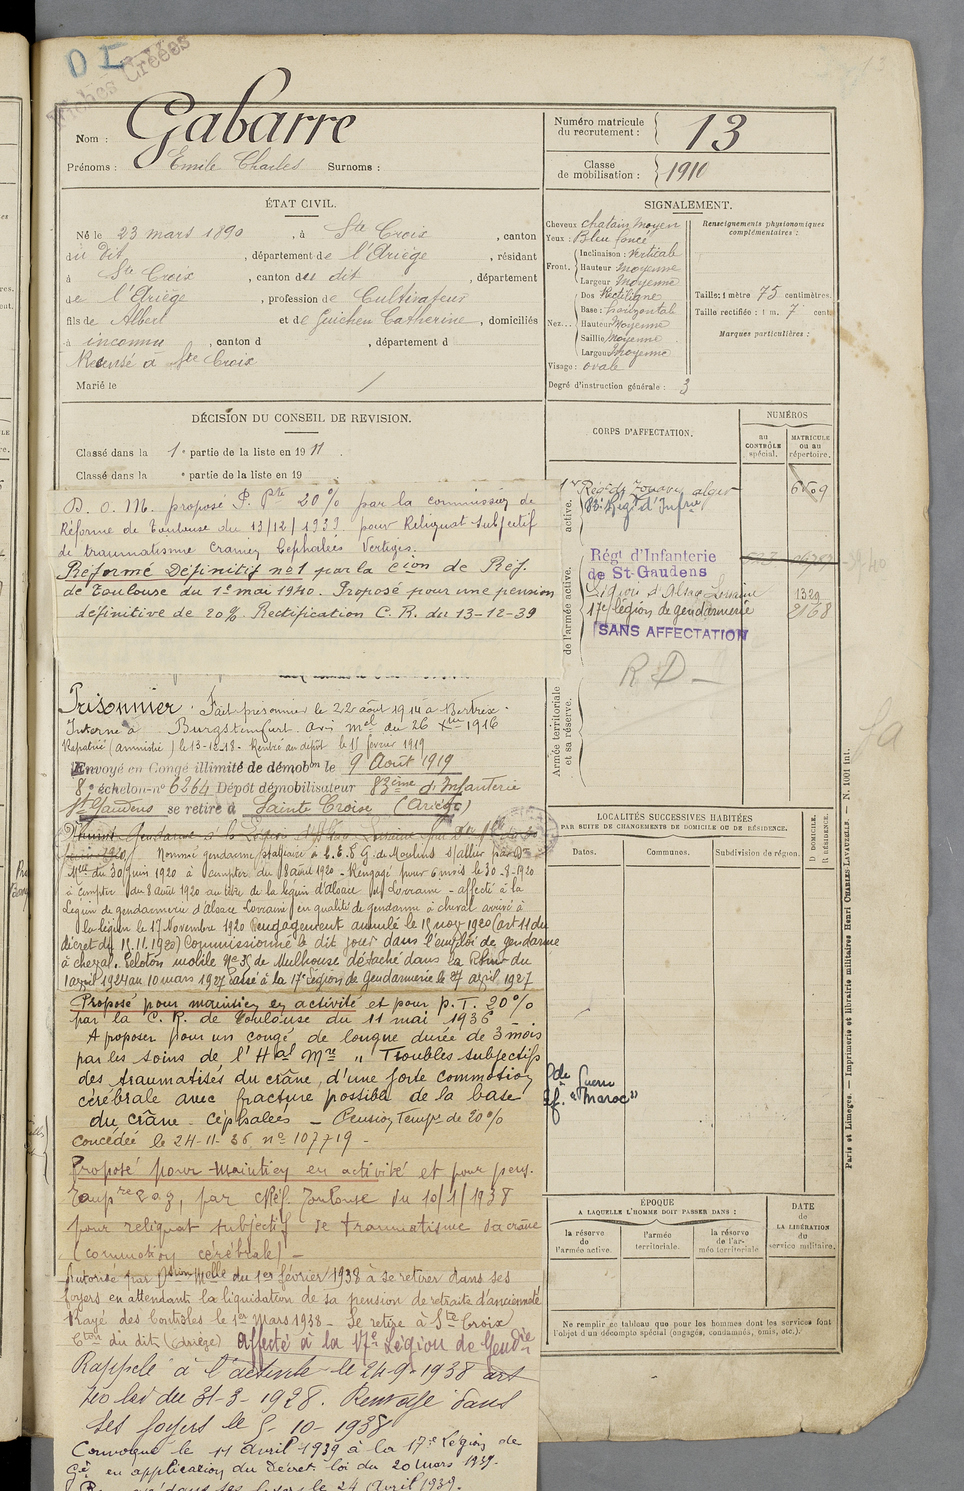 D I
Fiches Créées
13
Nom : Gabarre
Prénoms : Emile Charles Surnoms :
Numéro matricule du recrutement : 13
Classe de mobilisation : 1910
ÉTAT CIVIL.
Né le 23 mars 1890, à Ste Croix, canton
du dit, département de l'Ariège, résidant
à Ste Croix, canton des dit, département
de l'Ariège, profession de Cultivateur
fils de Albert et de Guichen Catherine, domiciliés
à inconnu, canton d , département d
Recensé à Ste Croix
Marié le /
SIGNALEMENT.
Cheveux chatain Moyen
Yeux : Bleu foncé
Front. Inclinaison : Verticale
Hauteur Moyenne
Largeur Moyenne
Nez... Dos Rectiligne
Base : horizontale
Hauteur Moyenne
Saillie Moyenne
Largeur Moyenne
Visage : ovale
Degré d'instruction générale : 3
Renseignements physionomiques complémentaires :
Taille : 1 mètre 75 centimètres.
Taille rectifiée : 1 m. 7 cent
Marques particulières :
DÉCISION DU CONSEIL DE REVISION.
Classé dans la 1e partie de la liste en 1911.
Classé dans la e partie de la liste en 19
D. O. M. proposé P. Pte 20% par la commission de
Réforme de Toulouse du 13/12/1939 pour Reliquat subjectif
de traumatisme cranien Cephalées Vertiges.
Réformé Définitif no 1 par la Cion de Réf.
de Toulouse du 1e mai 1940. Proposé pour une pension
définitive de 20%. Rectification C. R. du 13-12-39
Prisonnier. Fait prisonnier le 22 août 1914 à Bertrix.
Interné à Burgsteinfurt avis mel du 26 Xbre 1916
Rapatrié (armistice) le 13-12-18. Rentré au dépôt le 11 février 1919
Envoyé en Congé illimité de démobon le 9 Août 1919
8e échelon - no 6264 Dépôt démobilisateur 83ème d'Infanterie
St Gaudens se retire à Sainte Croix (Ariège)
Nommé gendarme stagiaire à E. E. G. de Moulins s/allier par Don
Melle du 30 juin 1920 à compter du 8 août 1920 - Rengagé pour 6 mois le 30-8-1920
à compter du 8 août 1920 au titre de la légion d'Alsace et Lorraine - affecté à la
Légion de gendarmerie d'Alsace Lorraine en qualité de gendarme à cheval arrivé à
la légion le 17 Novembre 1920 Rengagement annulé le 15 nov 1920 (art 11 du
décret du 15.11.1920) Commissionné le dit jour dans l'emploi de gendarme
à cheval. Peloton mobile No 35 de Mulhouse détaché dans la Rhur du
1 avril 1924 au 10 mars 1927 Passé à la 17e Légion de Gendarmerie le 27 avril 1927
Proposé pour maintien en activité et pour p. T. 20%
par la C. R. de Toulouse du 11 mai 1936
A proposer pour un congé de longue durée de 3 mois
par les soins de l'Hal Mre " Troubles subjectifs
des traumatisés du crâne, d'une forte commotion
cérébrale avec fracture possible de la base
du crâne. Céphalées - Pension Tempre de 20%
concédée le 24-11-36 no 107719 -
Proposé pour maintien en activité et pour pens.
Temp re 20%, par CRéf. Toulouse du 10/1/1938
pour reliquat subjectif de traumatisme du crâne
(commotion cérébrale) -
Autorisé par Dsion Melle du 1er février 1938 à se retirer dans ses
foyers en attendant la liquidation de sa pension de retraite d'ancienneté
Rayé des Contrôles le 1er Mars 1938 - Se retire à Ste Croix
Cton du dit (Ariège) Affecté à la 17e Légion de Gendie
Rappelé à l'activité le 24-9-1938 art
40 loi du 31-3-1928. Renvoyé dans
ses foyers le 5-10-1938
Convoqué le 11 avril 1939 à la 17e Légion de
Gie en application du Décret-loi du 20 mars 1939.
dans ses foyers le 24 Avril 1939.
CORPS D'AFFECTATION.
NUMÉROS
au CONTRÔLE spécial.
MATRICULE ou au répertoire.
active.
1er Régt de Zouaves alger 6509
83e Régt d'Infrie
de l'armée active.
Régt d'Infanterie
de St-Gaudens
Légion d'Alsace Lorraine 1329
17e légion de gendarmerie 2168
SANS AFFECTATION
R D -
Armée territoriale et sa réserve.
LOCALITÉS SUCCESSIVES HABITÉES
PAR SUITE DE CHANGEMENTS DE DOMICILE OU DE RÉSIDENCE.
Dates.
Communes.
Subdivision de région.
D DOMICILE.
R RÉSIDENCE.
de Guerre
"Maroc"
ÉPOQUE
A LAQUELLE L'HOMME DOIT PASSER DANS :
la réserve de l'armée active.
l'armée territoriale.
la réserve de l'armée territoriale
DATE de LA LIBÉRATION du service militaire.
Ne remplir ce tableau que pour les hommes dont les services font
l'objet d'un décompte spécial (engagés, condamnés, omis, etc.).
Paris et Limoges. — Imprimerie et librairie militaires Henri CHARLES-LAVAUZELLE. — N. 1001 int.